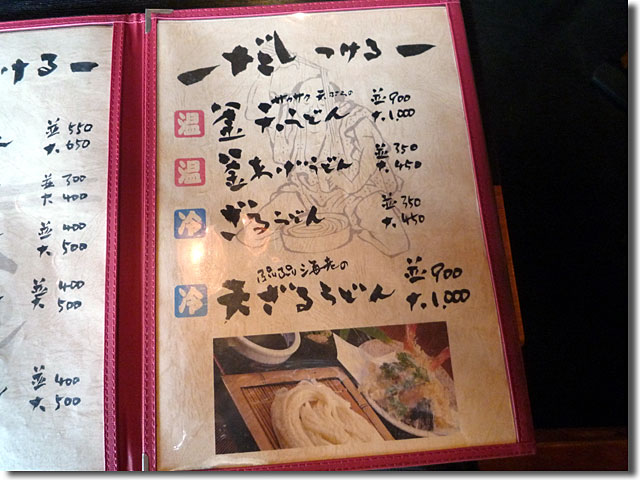 ける
並 550
大 650
並 300
大 400
並 400
大 500
並 400
大 500
並 400
大 500
だし つける
サクサク 天ぷらの
温 釜天うどん 並 900
大 1,000
温 釜あげうどん 並 350
大 450
冷 ざるうどん 並 350
大 450
ぷりぷり海老の
冷 天ざるうどん 並 900
大 1,000